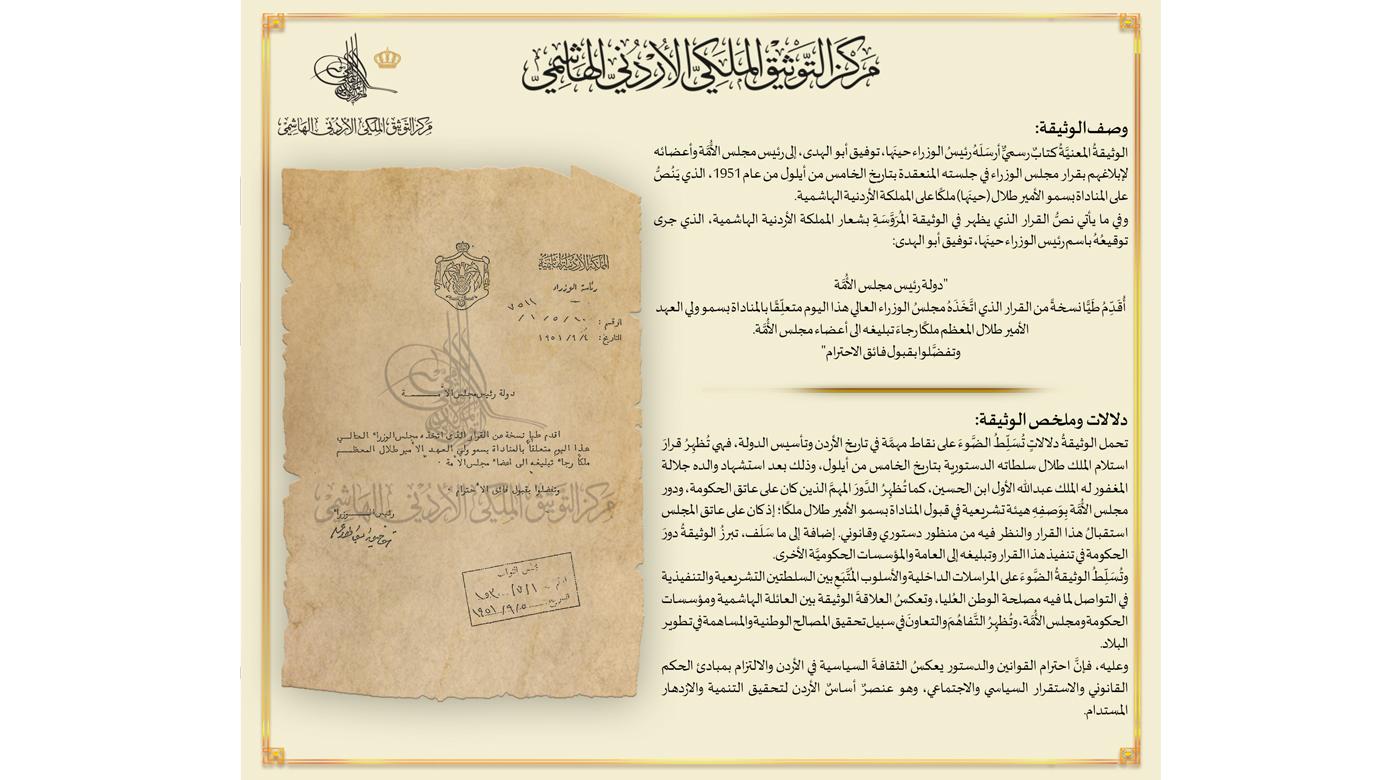 مركز التوثيق الملكي الأردني الهاشمي
مركز التوثيق الملكي الأردني الهاشمي
وصف الوثيقة:
الوثيقةُ المعنيَّةُ كتابٌ رسميٌّ أرسَلَهُ رئيسُ الوزراء حينَها، توفيق أبو الهدى، إلى رئيس مجلس الأُمَّة وأعضائه
لإبلاغهم بقرار مجلس الوزراء في جلسته المنعقدة بتاريخ الخامس من أيلول من عام 1951، الذي يَنُصُّ
على المناداة بسمو الأمير طلال (حينَها) ملكًا على المملكة الأردنية الهاشمية.
وفي ما يأتي نصُّ القرار الذي يظهر في الوثيقة المُرَوَّسَةِ بشعار المملكة الأردنية الهاشمية، الذي جرى
توقيعُهُ باسم رئيس الوزراء حينَها، توفيق أبو الهدى:
"دولة رئيس مجلس الأُمَّة
أُقَدِّمُ طَيًّا نسخةً من القرار الذي اتَّخَذَهُ مجلسُ الوزراء العالي هذا اليوم متعلِّقًا بالمناداة بسمو ولي العهد
الأمير طلال المعظم ملكًا رجاءَ تبليغه الى أعضاء مجلس الأُمَّة.
وتفضَّلوا بقبول فائق الاحترام"
دلالات وملخص الوثيقة:
تحمل الوثيقةُ دلالاتٍ تُسَلِّطُ الضَّوءَ على نقاط مهمَّة في تاريخ الأردن وتأسيس الدولة، فهي تُظهِرُ قرارَ
استلام الملك طلال سلطاته الدستورية بتاريخ الخامس من أيلول، وذلك بعد استشهاد والده جلالة
المغفور له الملك عبدالله الأول ابن الحسين، كما تُظهِرُ الدَّورَ المهمَّ الذين كان على عاتق الحكومة، ودور
مجلس الأُمَّة بِوَصفِهِ هيئة تشريعية في قبول المناداة بسمو الأمير طلال ملكًا؛ إذ كان على عاتق المجلس
استقبالُ هذا القرار والنظر فيه من منظور دستوري وقانوني. إضافة إلى ما سَلَف، تبرزُ الوثيقةُ دورَ
الحكومة في تنفيذ هذا القرار وتبليغه إلى العامة والمؤسسات الحكوميَّة الأخرى.
وتُسَلِّطُ الوثيقةُ الضَّوءَ على المراسلات الداخلية والأسلوب المُتَّبَعِ بين السلطتين التشريعية والتنفيذية
في التواصل لما فيه مصلحة الوطن العُليا، وتعكسُ العلاقةَ الوثيقة بين العائلة الهاشمية ومؤسسات
الحكومة ومجلس الأُمَّة، وتُظهِرُ التَّفاهُمَ والتعاونَ في سبيل تحقيق المصالح الوطنية والمساهمة في تطوير
البلاد.
وعليه، فإنَّ احترام القوانين والدستور يعكسُ الثقافةَ السياسية في الأردن والالتزام بمبادئ الحكم
القانوني والاستقرار السياسي والاجتماعي، وهو عنصرٌ أساسٌ الأردن لتحقيق التنمية والازدهار
المستدام.
المملكة الأردنية الهاشمية
رئاسة الوزراء
الرقم:
التاريخ: ١٩٥١/٩/٤
دولة رئيس مجلس الأمة
اقدم طيا نسخة من القرار الذي اتخذه مجلس الوزراء العالي
هذا اليوم متعلقاً بالمناداة بسمو ولي العهد الأمير طلال المعظم
ملكاً رجاء تبليغه الى اعضاء مجلس الأمة .
وتفضلوا بقبول فائق الاحترام .
مركز التوثيق الملكي الأردني الهاشمي
رئيس الوزراء
مجلس النواب
التاريخ ١٩٥١/٩/٥